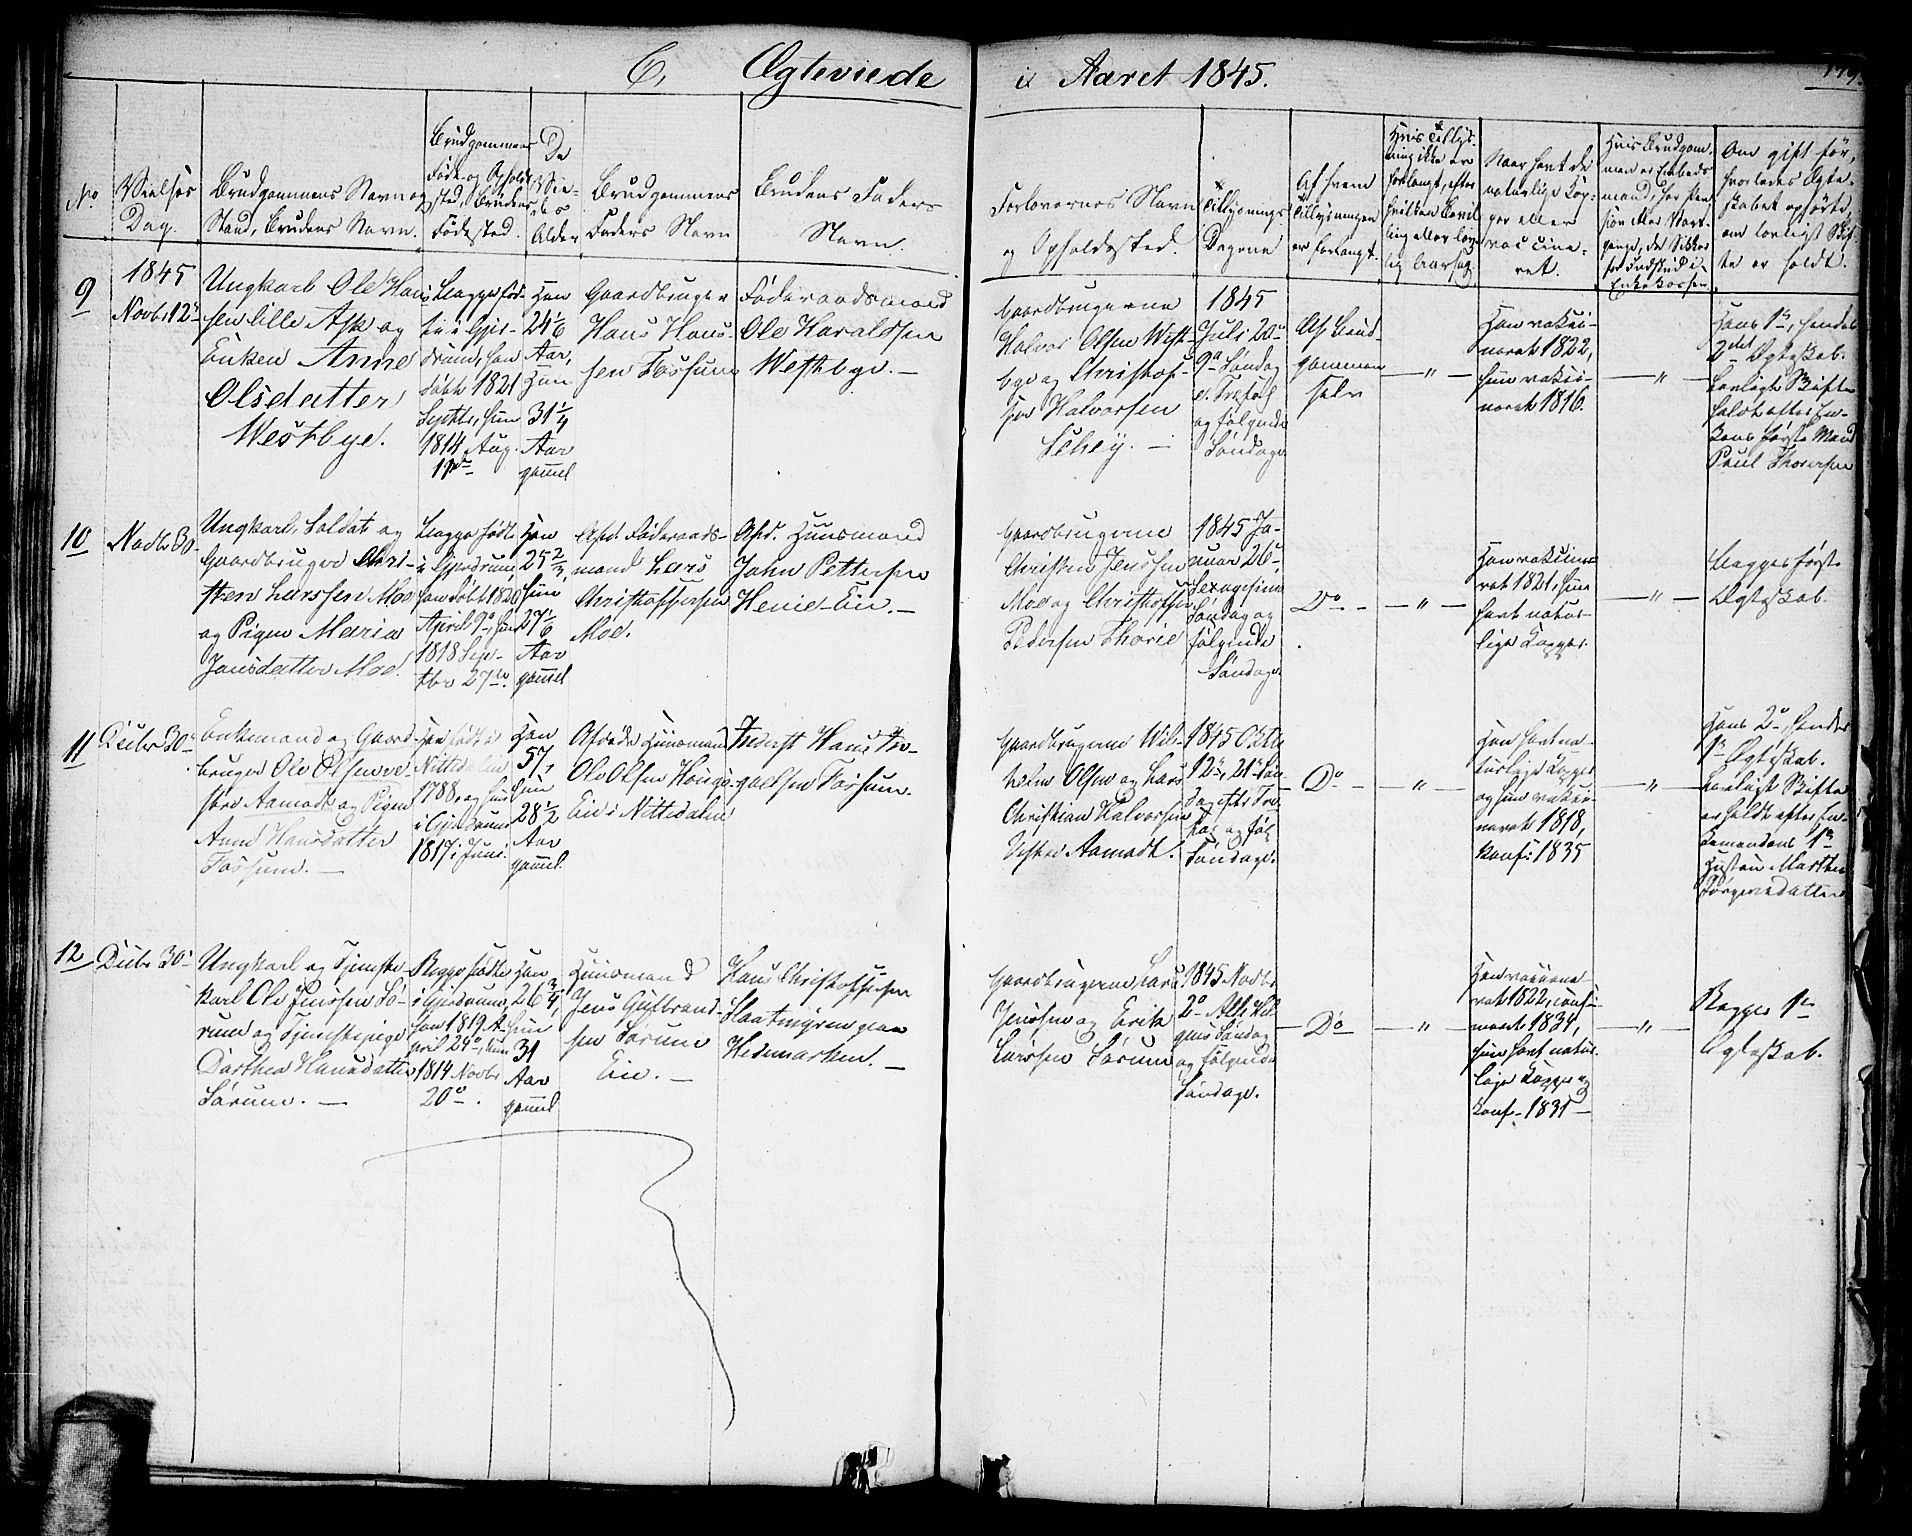 C, Ægteviede
i Aaret 1845.
No
Vielses
Dag.
Brudgommens Navn og
Stand, Brudens Navn.
Brudgommens
Føde- og Opholds-
sted, Brudens
Fødested.
De
Vie-
des
Alder
Brudgommens
Faders Navn
Brudens Faders
Navn.
Forlovernes Navn
og Opholdssted.
Tillysnings
Dagene
Af hvem
Tillysningen
er forlangt.
Hvis Tillys-
ning ikke er
forlangt, efter
hvilken Bevil-
ling eller lov-
lig
Naar havt de
naturlige Kop-
per eller
vaccine-
ret.
Hvis Brudgom-
men er Embeds
mand,
Om gift før,
hvorledes Ægte-
skabet ophørte,
om lovligt Skif-
te er holdt.
9
1845
Novbr 12te
Ungkarl Ole Han-
sen Lille Ask og
Enken Anne
Olsdatter
Westbye.
Begge fød-
te i Gjer-
drum, han
født 1821
Septbr, hun
1814 Aug.
Han
24 1/6
Aar,
Hun
31 1/4
Aar
gammel
Gaardbruger
Hans Han-
sen Fossum
Føderaadsmand
Ole Haraldsen
Westbye. —
Gaardbrugerne
Halvor Olsen West-
bye og Christof-
fer Halvorsen
1845
Juli 20de
9de Søndag
e. Trefold
og følgende
Søndage
Af Brud-
gommen
selv
— " —
Han vakci-
neret 1822,
hun vakci-
neret 1816.
— " —
Hans 1ste, hendes
2det Ægteskab.
Lovligt Skifte
holdt efter En-
kens første Mand
Paul Thoresen
10
Novbr 30
Ungkarl, Soldat og
Gaardbruger Chri-
sten Larssen Moe
og Pigen Maria
Jansdatter Moe.
Begge født
i Gjerdrum,
han født 1820
April 9de, hun
1818 Sep-
tbr 27de.
Han
25 2/3,
Hun
27 1/6
Aar
gammel
Afd. Føderaads-
mand Lars
Christophersen
Moe.
Afd. Huusmand
John Pettersen
Henie-Eie. —
Gaardbrugerne
Christen Jenssen
Moe og Christoffer
Pedersen Thorie
1845 Ja-
nuar 26de
Sexagesima
Søndag og
følgende
Søndage
Do —
— " —
Han vakcine-
ret 1821, hun
havt natur-
lige Kopper.
— " —
Begges første
Ægteskab.
11
Decbr 30
Enkemand og Gaard-
bruger Ole Olsen ve-
stre Aamodt og Pigen
Anne Hansdatter
Fossum. —
Han født i
Nittedalen
1788, og hun
i Gjerdrum
1817 i Juni
Han
57,
Hun
28 1/2
Aar
gammel
Afdøde Huusmand
Ole Olsen
Eie i Nittedalen
Inderst Hans
Fossum.
Gaardbrugerne Wil-
helm Olsen og Lars
Christian Halvorsen
Vestre Aamodt.
1845 Octbr
12te, 21de Søn-
dag efter Tre-
fol. og føl.
Søndage.
— Do —
"
Han havt na-
turlige Kopper
og hun vakci-
neret 1818,
konf: 1835
— " —
Hans 2de, hendes
1ste Ægteskab.
Lovligt Skifte
er holdt efter En-
kemandens 1ste
Hustru Marthe
Jørgensdatter
12
Decbr 30
Ungkarl og Tjeneste-
karl Ole Jenssen Sø-
rum og Tjenestepige
Dorthea Hansdatter
Sørum. —
Begge fødte
i Gjerdrum,
han 1819 A-
pril 24de, hun
1814 Novbr
20de.
Han
26 3/4,
hun
31
Aar
gammel
Huusmand
Jens Gulbrand-
sen Sørum
Eie. —
Hans Christophersen
Hedemarken. —
Gaardbrugerne Lars
Jenssen og Erik
Larssen Sørum
1845 Novbr
2de Alle Hel-
gens Søndag
og følgende
Søndage.
— Do —
— " —
Han vaccine-
ret 1822, confir-
meret 1834,
hun havt natur-
lige Kopper og
konf. 1831 —
— " —
Begges 1ste
Ægteskab.